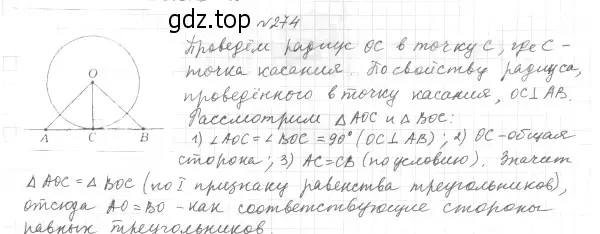 gdz.top
№274
Проведём радиус OC в точку C, где C -
точка касания. По свойству радиуса,
проведённого в точку касания, OC⊥AB.
Рассмотрим △AOC и △BOC:
1) ∠AOC=∠BOC=90° (OC⊥AB); 2) OC-общая
сторона; 3) AC=CB (по условию). Значит
△AOC=△BOC (по I признаку равенства треугольников),
отсюда AO=BO -как соответствующие стороны
равных треугольников.
O
A C B